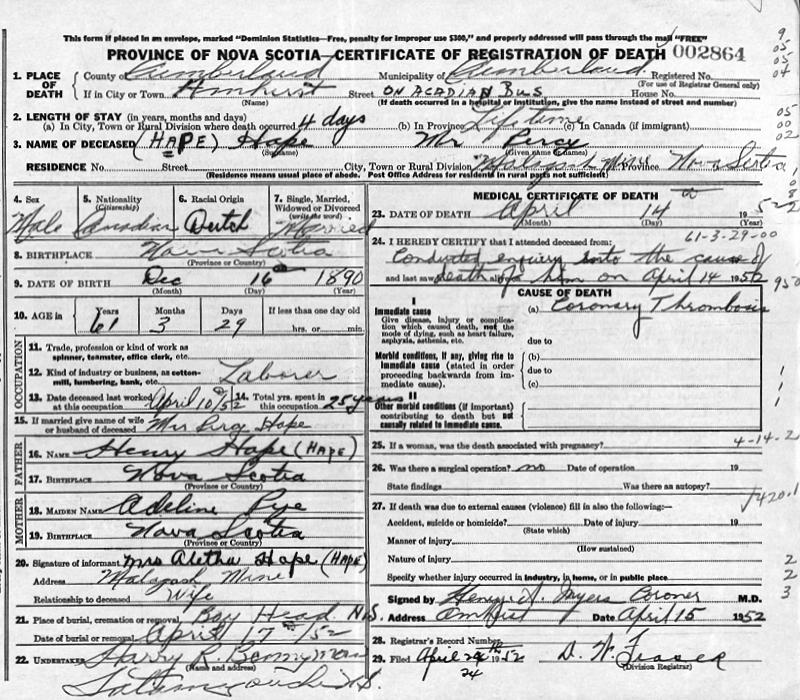 This form if placed in an envelope, marked "Dominion Statistics—Free, penalty for improper use $300," and properly addressed will pass through the mail "FREE"
PROVINCE OF NOVA SCOTIA—CERTIFICATE OF REGISTRATION OF DEATH 002864
1. PLACE OF DEATH County of Cumberland Municipality of Cumberland Registered No.
(For use of Registrar General only)
If in City or Town Amherst Street ON ACADIAN BUS House No.
(Name) (If death occurred in a hospital or institution, give the name instead of street and number)
2. LENGTH OF STAY (in years, months and days)
(a) In City, Town or Rural Division where death occurred 4 days (b) In Province Lifetime (c) In Canada (if immigrant)
3. NAME OF DECEASED (HAPE) Hape Mr Percy
(Surname) (Given names)
RESIDENCE No. Street City, Town or Rural Division Malagash Mine Province Nova Scotia
(Residence means usual place of abode. Post Office Address for residents in rural parts not sufficient)
4. Sex Male
5. Nationality (Citizenship) Canadian
6. Racial Origin Dutch
7. Single, Married, Widowed or Divorced (write the word) Married
8. BIRTHPLACE Nova Scotia
(Province or Country)
9. DATE OF BIRTH Dec 16 1890
(Month) (Day) (Year)
10. AGE in Years Months Days If less than one day old
61 3 29 hrs. or min.
OCCUPATION
11. Trade, profession or kind of work as spinner, teamster, office clerk, etc.
12. Kind of industry or business, as cotton-mill, lumbering, bank, etc. Laborer
13. Date deceased last worked at this occupation April 10/52 14. Total yrs. spent in this occupation 25 years
15. If married give name of wife or husband of deceased Mrs Percy Hape
FATHER
16. NAME Henry Hape (HAPE)
17. BIRTHPLACE Nova Scotia
(Province or Country)
MOTHER
18. MAIDEN NAME Adeline Pye
19. BIRTHPLACE Nova Scotia
(Province or Country)
20. Signature of informant Mrs Aletha Hape (HAPE)
Address Malagash Mine
Relationship to deceased Wife
21. Place of burial, cremation or removal Bay Head N.S.
Date of burial or removal April 17/52
22. UNDERTAKER Harry R Bonnyman
(Name and address)
Tatamagouche N.S.
MEDICAL CERTIFICATE OF DEATH
23. DATE OF DEATH April 14 1952
(Month) (Day) (Year)
61-3-29-00
24. I HEREBY CERTIFY that I attended deceased from:
Conducted enquiry into the cause of
and last saw death of him on April 14 1952
CAUSE OF DEATH
I
Immediate cause (a) Coronary Thrombosis
Give disease, injury or complication which caused death, not the mode of dying, such as heart failure, asphyxia, asthenia, etc.
due to
Morbid conditions, if any, giving rise to immediate cause (stated in order proceeding backwards from immediate cause).
(b)
due to
(c)
II
Other morbid conditions (if important) contributing to death but not causally related to immediate cause.
25. If a woman, was the death associated with pregnancy? 4-14-2
26. Was there a surgical operation? no Date of operation 19
State findings Was there an autopsy?
420.1
27. If death was due to external causes (violence) fill in also the following:—
Accident, suicide or homicide? Date of injury 19
(State which)
Manner of injury
(How sustained)
Nature of injury
Specify whether injury occurred in industry, in home, or in public place
Signed by Henry A. Myers Coroner M.D.
Address Amherst Date April 15 1952
28. Registrar's Record Number
29. Filed April 24th 1952 D. W. Fraser
24 (Division Registrar)